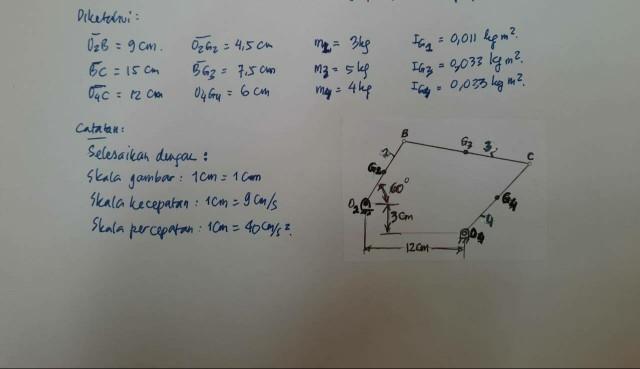 Diketahui:
O2B = 9 cm. O2G2 = 4,5 cm m2 = 3 kg IG2 = 0,011 kg m².
BC = 15 cm BG3 = 7,5 cm m3 = 5 kg IG3 = 0,033 kg m².
O4C = 12 cm O4G4 = 6 cm m4 = 4 kg IG4 = 0,033 kg m².
Catatan:
Selesaikan dengan :
Skala gambar : 1 cm = 1 cm
Skala kecepatan : 1 cm = 9 cm/s
Skala percepatan : 1 cm = 40 cm/s².
B
G3
3
C
2
G2
60°
G4
O2
3 cm
4
O4
12 cm